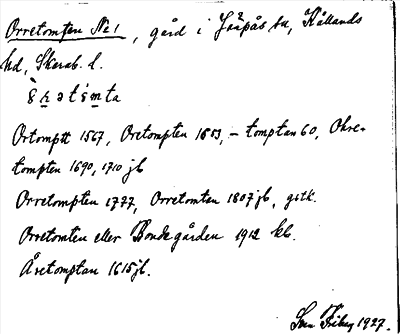 Orretomten No 1, gård i Järpås sn, Kållands
hd, Skarab. l.
Ortomptt 1567, Oretompten 1653, – tomptan 60, Ohre-
tompten 1690, 1710 jb
Orretompten 1777, Orretomten 1807 jb, gstk.
Orretomten eller Bondegården 1912 kb.
Åretomptan 1615 jb.
Sven Friberg 1927.